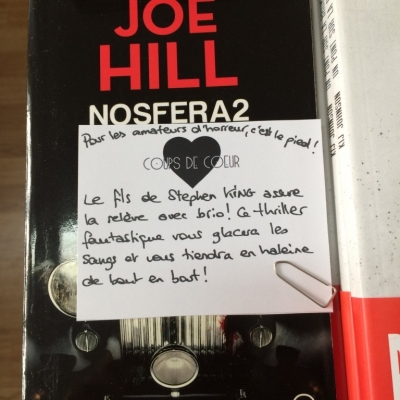 JOE
HILL
NOSFERA2
Pour les amateurs d'horreur, c'est le pied !
COUPS DE COEUR
Le fils de Stephen KING assure
la relève avec brio ! Ce thriller
fantastique vous glacera les
sangs et vous tiendra en haleine
de bout en bout !